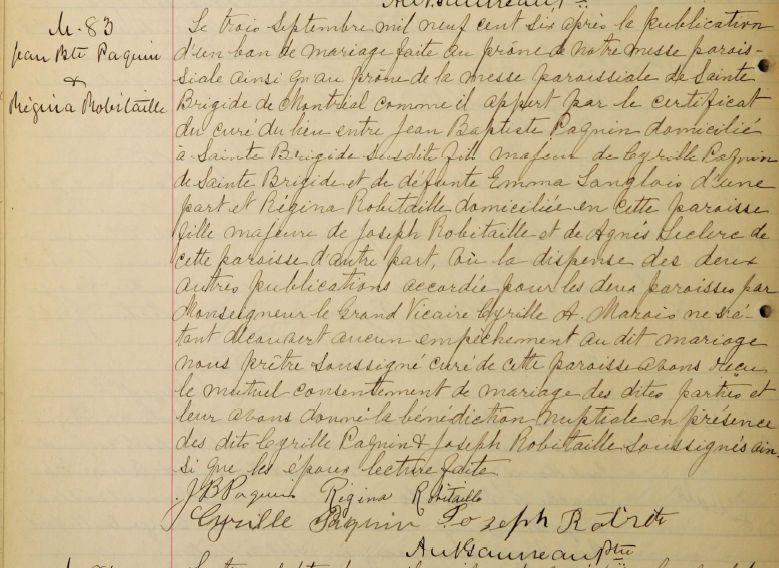 M. 83
Jean Bte Paquin
&
Régina Robitaille
Le trois Septembre mil neuf cent six après la publication
d'un ban de mariage faite au prône de notre messe parois-
siale ainsi qu'au prône de la messe paroissiale de Sainte
Brigide de Montréal comme il appert par le certificat
du curé du lieu entre Jean Baptiste Paquin domicilié
à Sainte Brigide susdite fils majeur de Cyrille Paquin
de Sainte Brigide et de défunte Emma Langlois d'une
part et Régina Robitaille domiciliée en cette paroisse
fille majeure de Joseph Robitaille et de Agnès Leclerc de
cette paroisse d'autre part, vu la dispense des deux
autres publications accordée pour les deux paroisses par
Monseigneur le Grand Vicaire Cyrille A. Marois ne s'é-
tant découvert aucun empêchement au dit mariage
nous prêtre soussigné curé de cette paroisse avons reçu
le mutuel consentement de mariage des dites parties et
leur avons donné la bénédiction nuptiale en présence
des dits Cyrille Paquin & Joseph Robitaille soussignés ain-
si que les époux lecture faite
J B Paquin Régina Robitaille
Cyrille Paquin Joseph
ptre